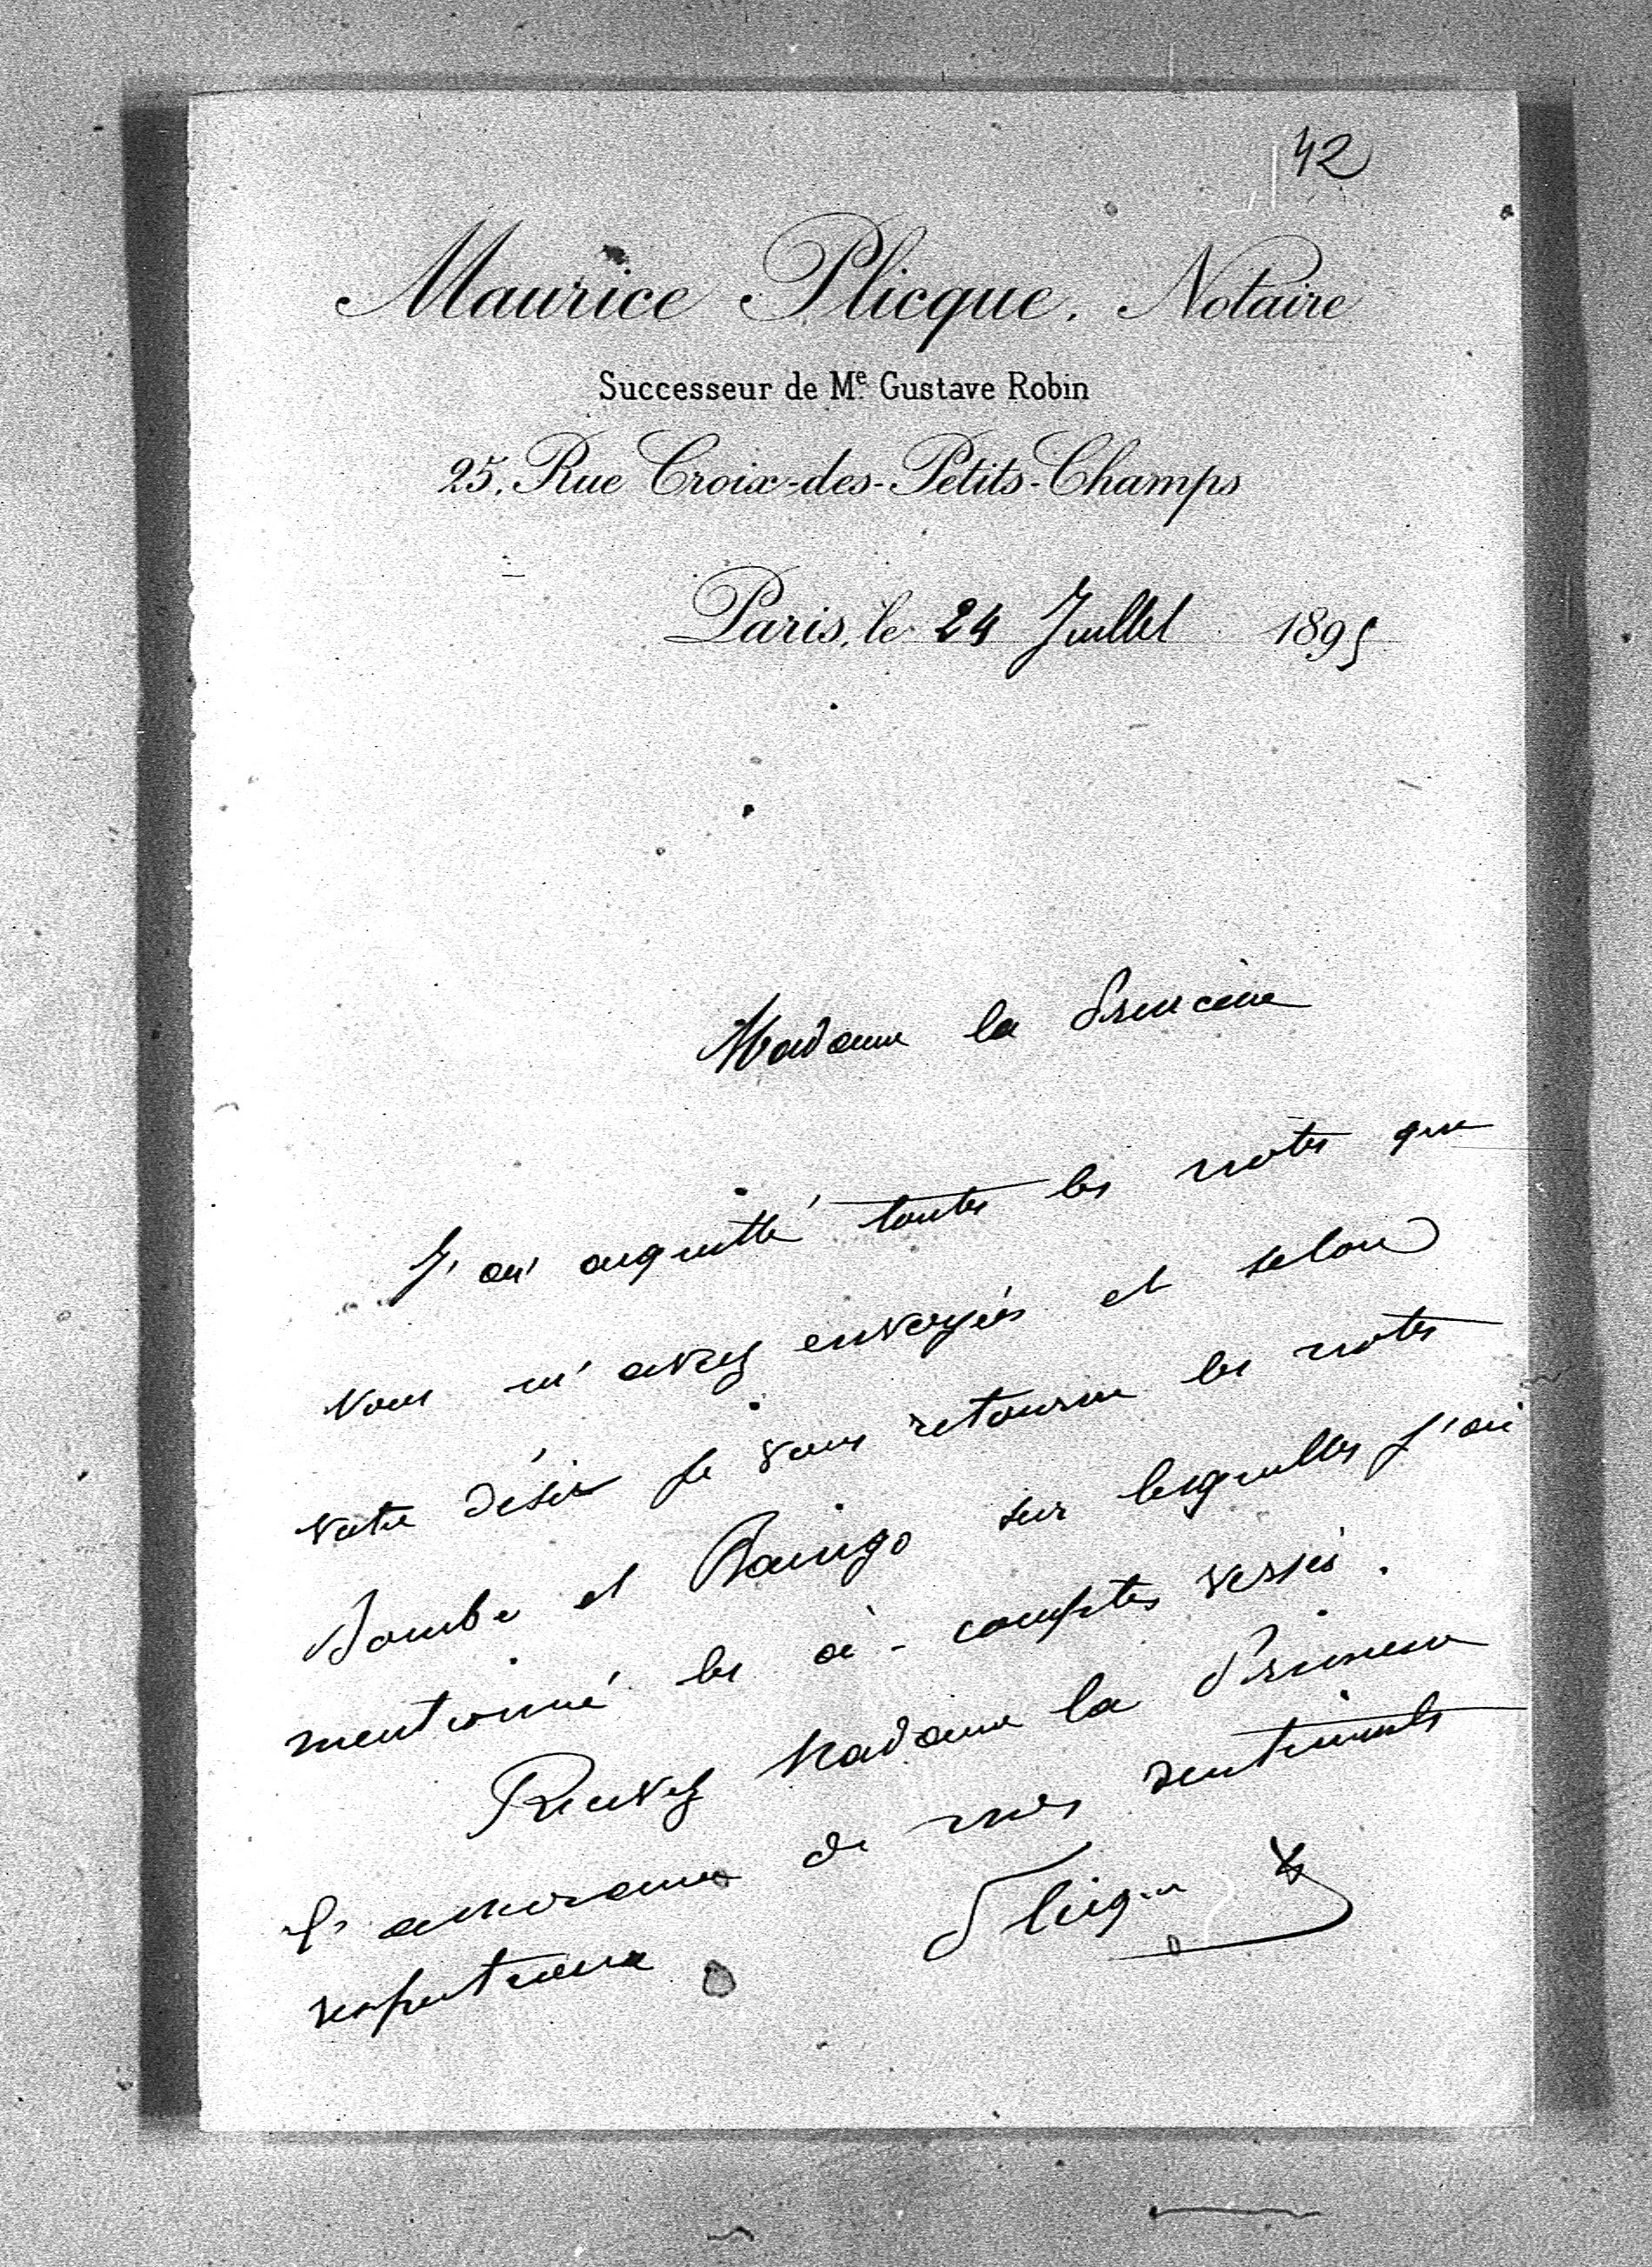 42
Maurice Plicque. Notaire
Successeur de Me. Gustave Robin
25, Rue Croix-des-Petits-Champs
Paris, le 24 Juillet 1895
Madame la Princesse
J'ai acquitté toutes les notes que
vous m'avez envoyées et selon
votre désir je vous retourne les notes
et Raingo sur lesquelles j'ai
mentionné les à-comptes versés.
Recevez Madame la Princesse
l'assurance de mes sentiments
respectueux
Plicque